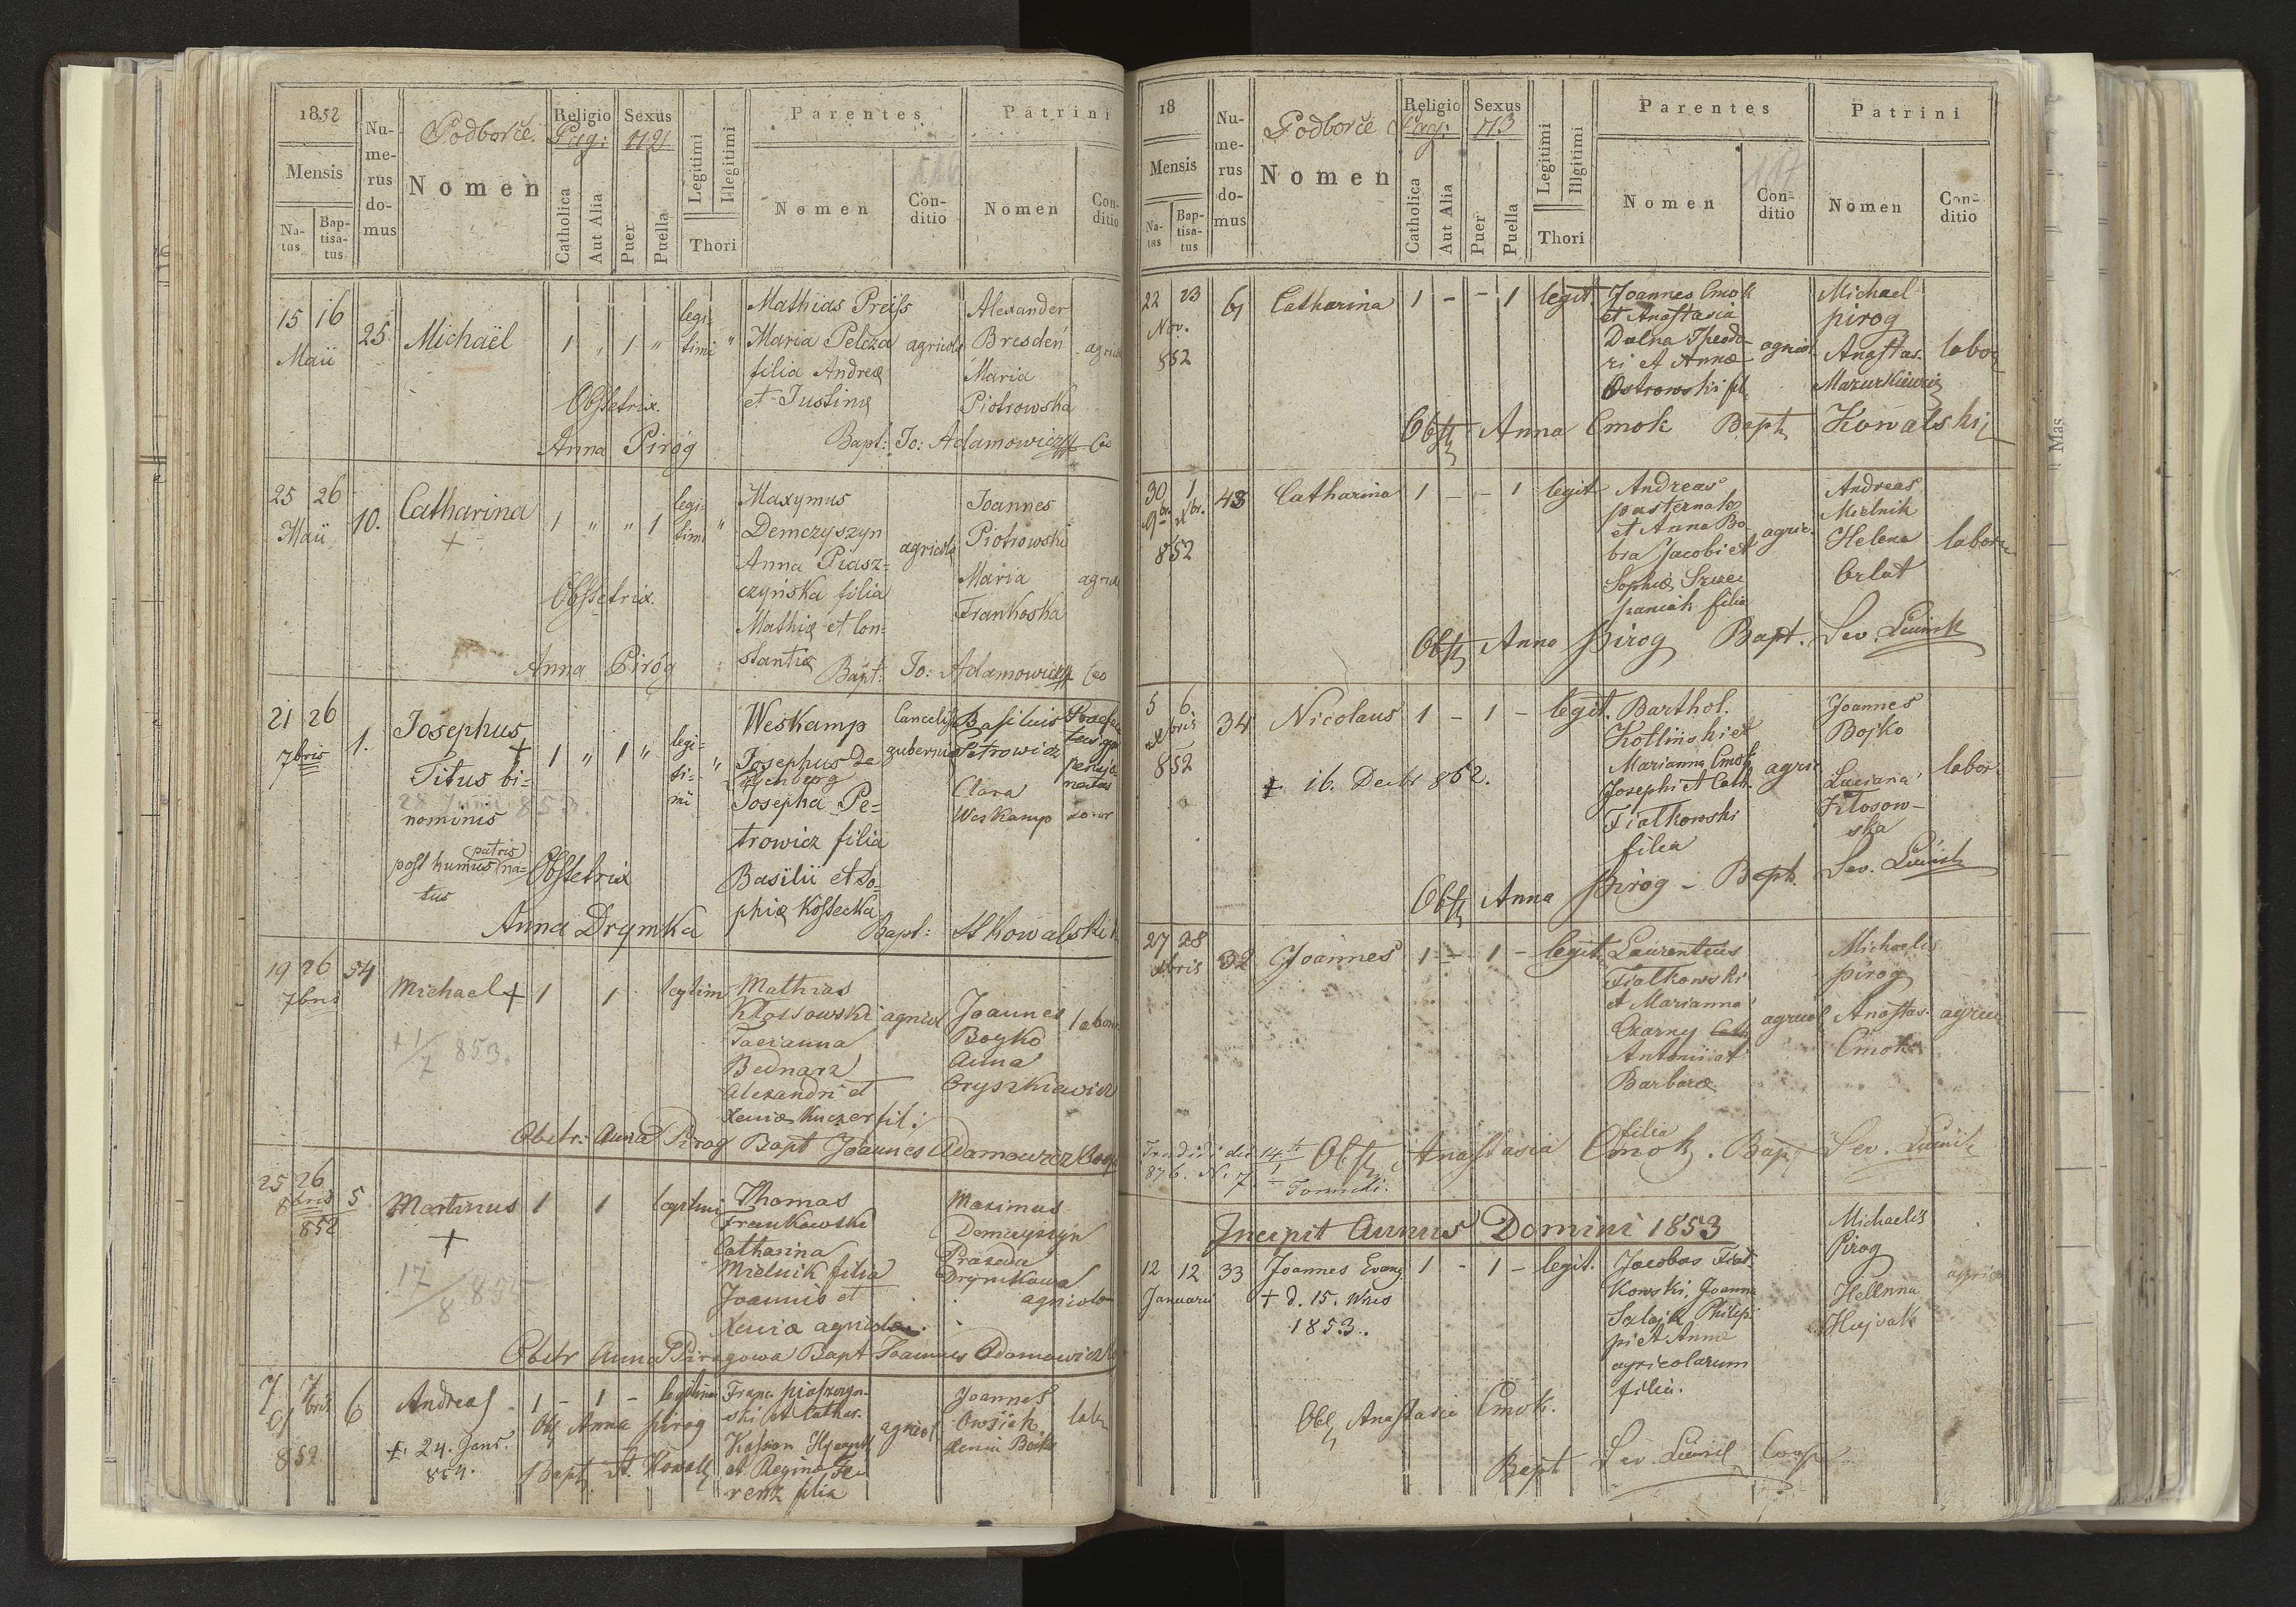 1852
Mensis
Natus
Baptisatus
Numerus domus
Podborce.
Nomen
Religio
Pag: 112
Catholica
Aut Alia
Sexus
Puer
Puella
Legitimi
Illegitimi
Thori
Parentes
Nomen
Conditio
Patrini
Nomen
Conditio
15 16
Maii
25
Michaël
1 „ 1 „
legi-
timi „
Mathias Preiss
Maria Pelcza
filia Andreæ
et Justinæ
agricola
Alexander
Bresdeń
Maria
Piotrowska
Obstetrix.
Anna Piróg
Bapt: Jo: Adamowicz
25 26
Maii
10.
Catharina
+
1 „ „ 1
legi-
timi „
Maxymus
Demczyszyn
Anna Piasz-
czyńska filia
Mathiæ et Con-
stantiæ
agricola
Joannes
Piotrowski
Maria
Frankoska
Obstetrix.
Anna Piróg
Bapt: Jo: Adamowicz
21 26
7bris
1.
Josephus +
Titus bi-
nominis
28 Junii 853.
posthumus (patris) na-
tus
1 „ 1 „
legi-
ti-
mi „
Weskamp
Josephus de
Josepha Pe-
trowicz filia
Basilii et So-
phiæ Kossecka
Basilius
Petrowicz
Clara
Weskamp
soror
Obstetrix
Anna Drymka
Bapt: St Kowalski
19 26
7bris
54
Michael +
+ 1/7 853.
1 1
legtim
Mathias
Kłossowski
Tacianna
Bednarz
Alexandri et
Xeniæ Kuczer fil:
agricol
Joannes
Boyko
Anna
Gryszkiewicz
Obstr: Anna Pirog Bapt Joannes Adamowicz Coop
25 26
8bris
852
5
Martinus
+
17/8 854
1 1
legtimi
Thomas
Frankowski
Catharina
Mielnik filia
Joannis et
Xeniæ agricolæ.
Maximus
Demczyszyn
Praxeda
Drymkowa
agricolæ
Obstr Anna Pirogowa Bapt Joannes Adamowicz
7 7
9bris
852
6
Andreas
+. 24. Janr.
854.
1 - 1 -
legitimi
Franc. Piaszczyn-
ski et Cathar.
et Regina
filia
agricol
Joannes
Owsiak
Xenia Bojko
Obst Anna Pirog
Bapt. St. Kowal
18
Mensis
Natus
Baptisatus
Numerus domus
Podborce
Nomen
Religio
Pag: 113
Catholica
Aut Alia
Sexus
Puer
Puella
Legitimi
Illgitimi
Thori
Parentes
Nomen
Conditio
Patrini
Nomen
Conditio
22 23
Nov.
852
61
Catharina
1 - - 1
legit
Joannes Cmok
et Anastasia
Dulna Theodo-
ri et Annæ
Ostrowski fil
agricol
Michael
Pirog
Anastas.
Mazurkiewicz
labor
Obst Anna Cmok Bapt Kowalski
30 1
9br. Xbr.
852
43
Catharina
1 - - 1
legit.
Andreas
Pasternak
et Anna Bo-
bra Jacobi et
Sophiæ Szcze-
paniak filia
agric.
Andreas
Mielnik
Helena
Orlat
labor
Obst Anna Pirog Bapt. Sev. Lewick
5 6
Xbris
852
34
Nicolaus
+ 16. Decbr 852.
1 - 1 -
legit.
Barthol.
Kotlinski et
Marianna Cmok
Josephi et Cath.
Fialkowski
filia
agric
Joannes
Bojko
Luciana
Kłosow-
ska
labor
Obst Anna Pirog - Bapt. Sev. Lewick
27 28
Xbris
32
Joannes
1 - 1 -
legit.
Laurentius
Fialkowski
et Marianna
Czarny
Antonii et
Barbaræ
filia
agricol
Michaelis
Pirog
Anastas.
Cmok
agricol
Obst Anastasia Cmok. Bapt Sev. Lewick
Incipit Annus Domini 1853
12 12
Januarii
33
Joannes Evang
+ d. 15. Xbris
1853.
1 - 1 -
legit.
Jacobus Fial-
kowski, Joanna
Salajk Philip-
pi et Annæ
agricolarum
filia.
Michaelis
Pirog
Hellenna
Hujvak
agric
Obst Anastasia Cmok.
Bapt Sev. Lewick Coop